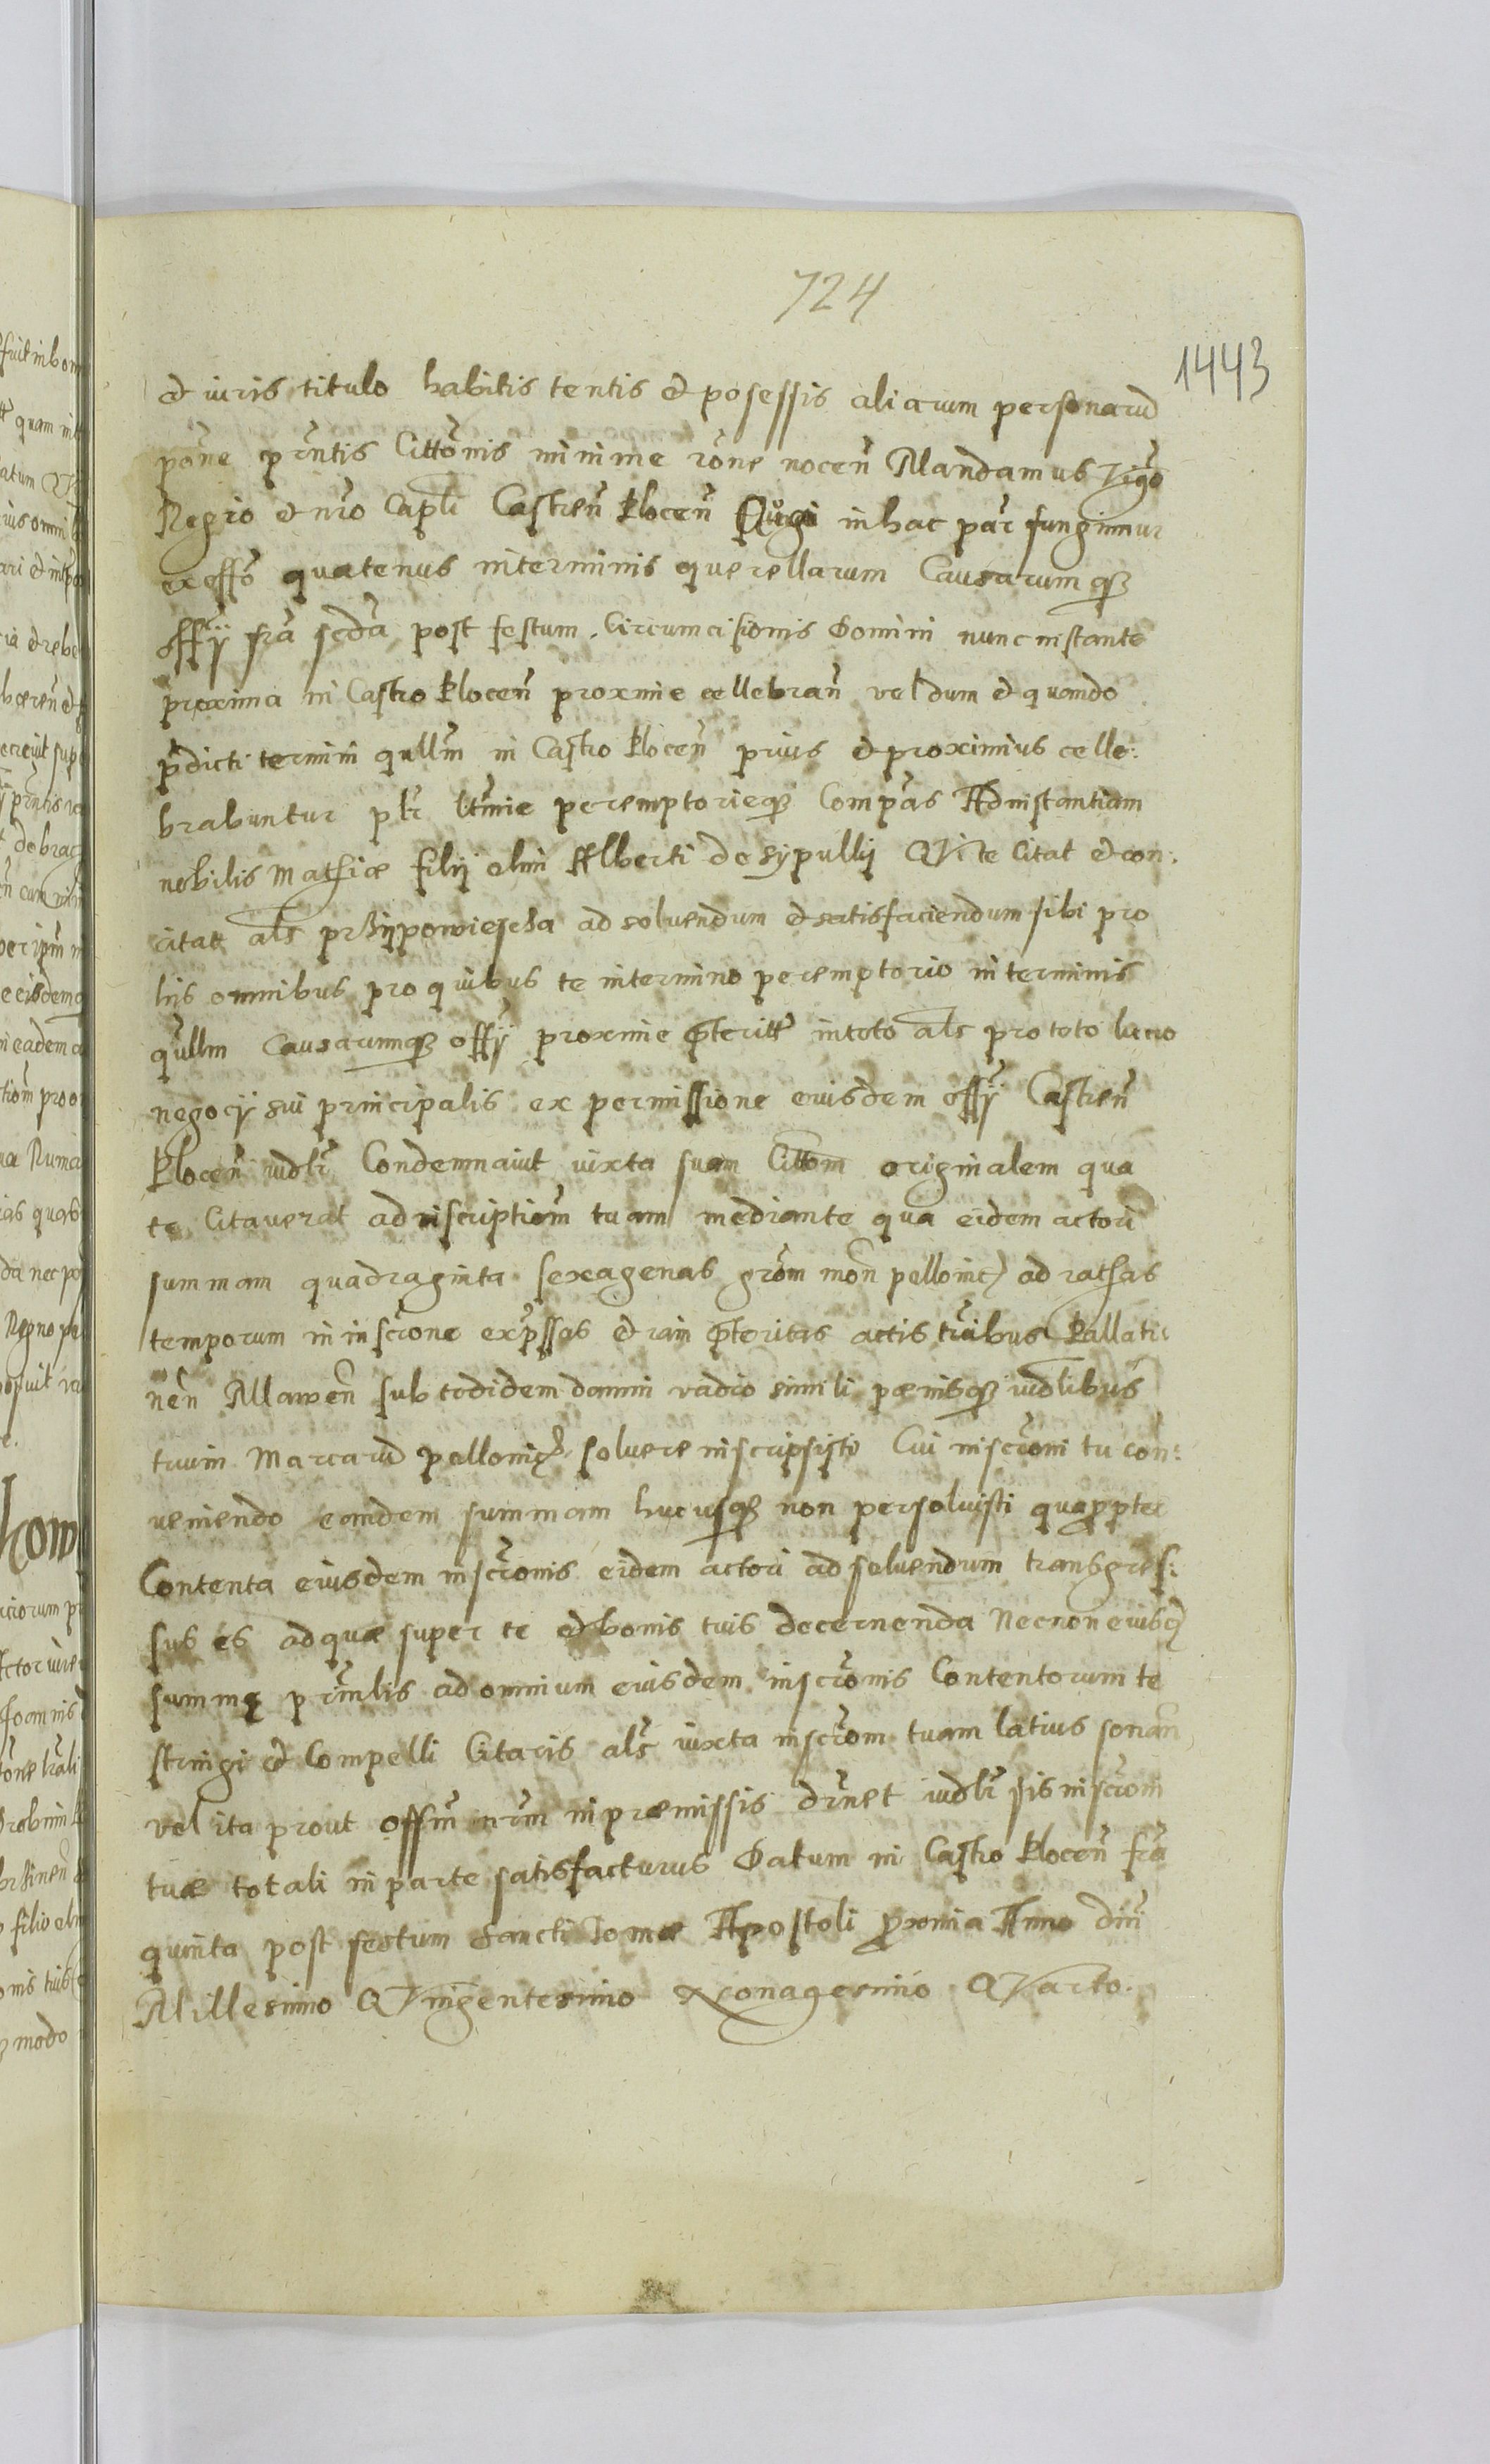 724
1443
et iuris titulo habitis tentis et posessis aliarum personarū
põne prñtis Cittõnis minime rõne nocen̄ Mandamus vigõ
Regio et nrõ Capl̃i Castren̄ Plocen̄ in hac par̃ fungimur
ex offõ quatenus in terminis querellarum Causarumqꝫ
offÿ frã scdã post festum Circumcisionis Domini nunc instante
proxima in Castro Plocen̄ proxime cellebran̄ vel dum et quando
p̄dicti termini qullm̃ in Castro Plocen̄ prius et proximius celle:
brabuntur pl̃r ltm̃ie peremptorieqꝫ Compãs Ad instantiam
nobilis Mathiæ filÿ olim Alberti de Sypullÿ QVi te Citat et con:
citat al̃s prziypowiescha ad soluendum et satisfaciendum sibi pro
hÿs omnibus pro quibus te in termino peremptorio in terminis
qũllm Causarumqꝫ offÿ proxime p̄teritt̃ in toto al̃s pro toto lucro
negocÿ sui principalis ex permissione eiusdem offÿ Castren̄
Plocen̄ iudl̃r Condemnauit iuxta suam Cittõm originalem qua
te Citauerat ad inscriptiõm tuam mediante qua eidem actori
summam quadraginta sexagenas grõm mon̄ pollonic) ad rathas
temporum in inscr̃one exp̃ssas et iam p̄teritas actis tr̃ibus Pallati:
nen̄ Mawen̄ sub totidem damni vadio simili pænisqꝫ iudlibus
trium Marcarū pollonic) soluere inscripsisti Cui inscr̃oni tu con:
ueniendo eandem summam hucusqꝫ non persoluisti quap̄pter
Contenta eiusdem inscr̃onis eidem actori ad soluendum transgres:
sus es ad quæ super te et bonis tuis decernenda Necnon eiusd)
summę prĩnlis ad omnium eiusdem inscr̃onis Contentorum te
stringi et Compelli Citaris al̃s iuxta inscr̃om tuam latius sonan̄
vel ita prout offm̃ nrm̃ in præmissis dr̃net iudl̃r sis inscr̃oni
tuæ totali in parte satisfacturus Datum in Castro Plocen̄ frã
quinta post festum Sancti Tomæ Apostoli p̄xomia Anno dni
Millesimo QVingentesimo Nonagesimo QVarto.